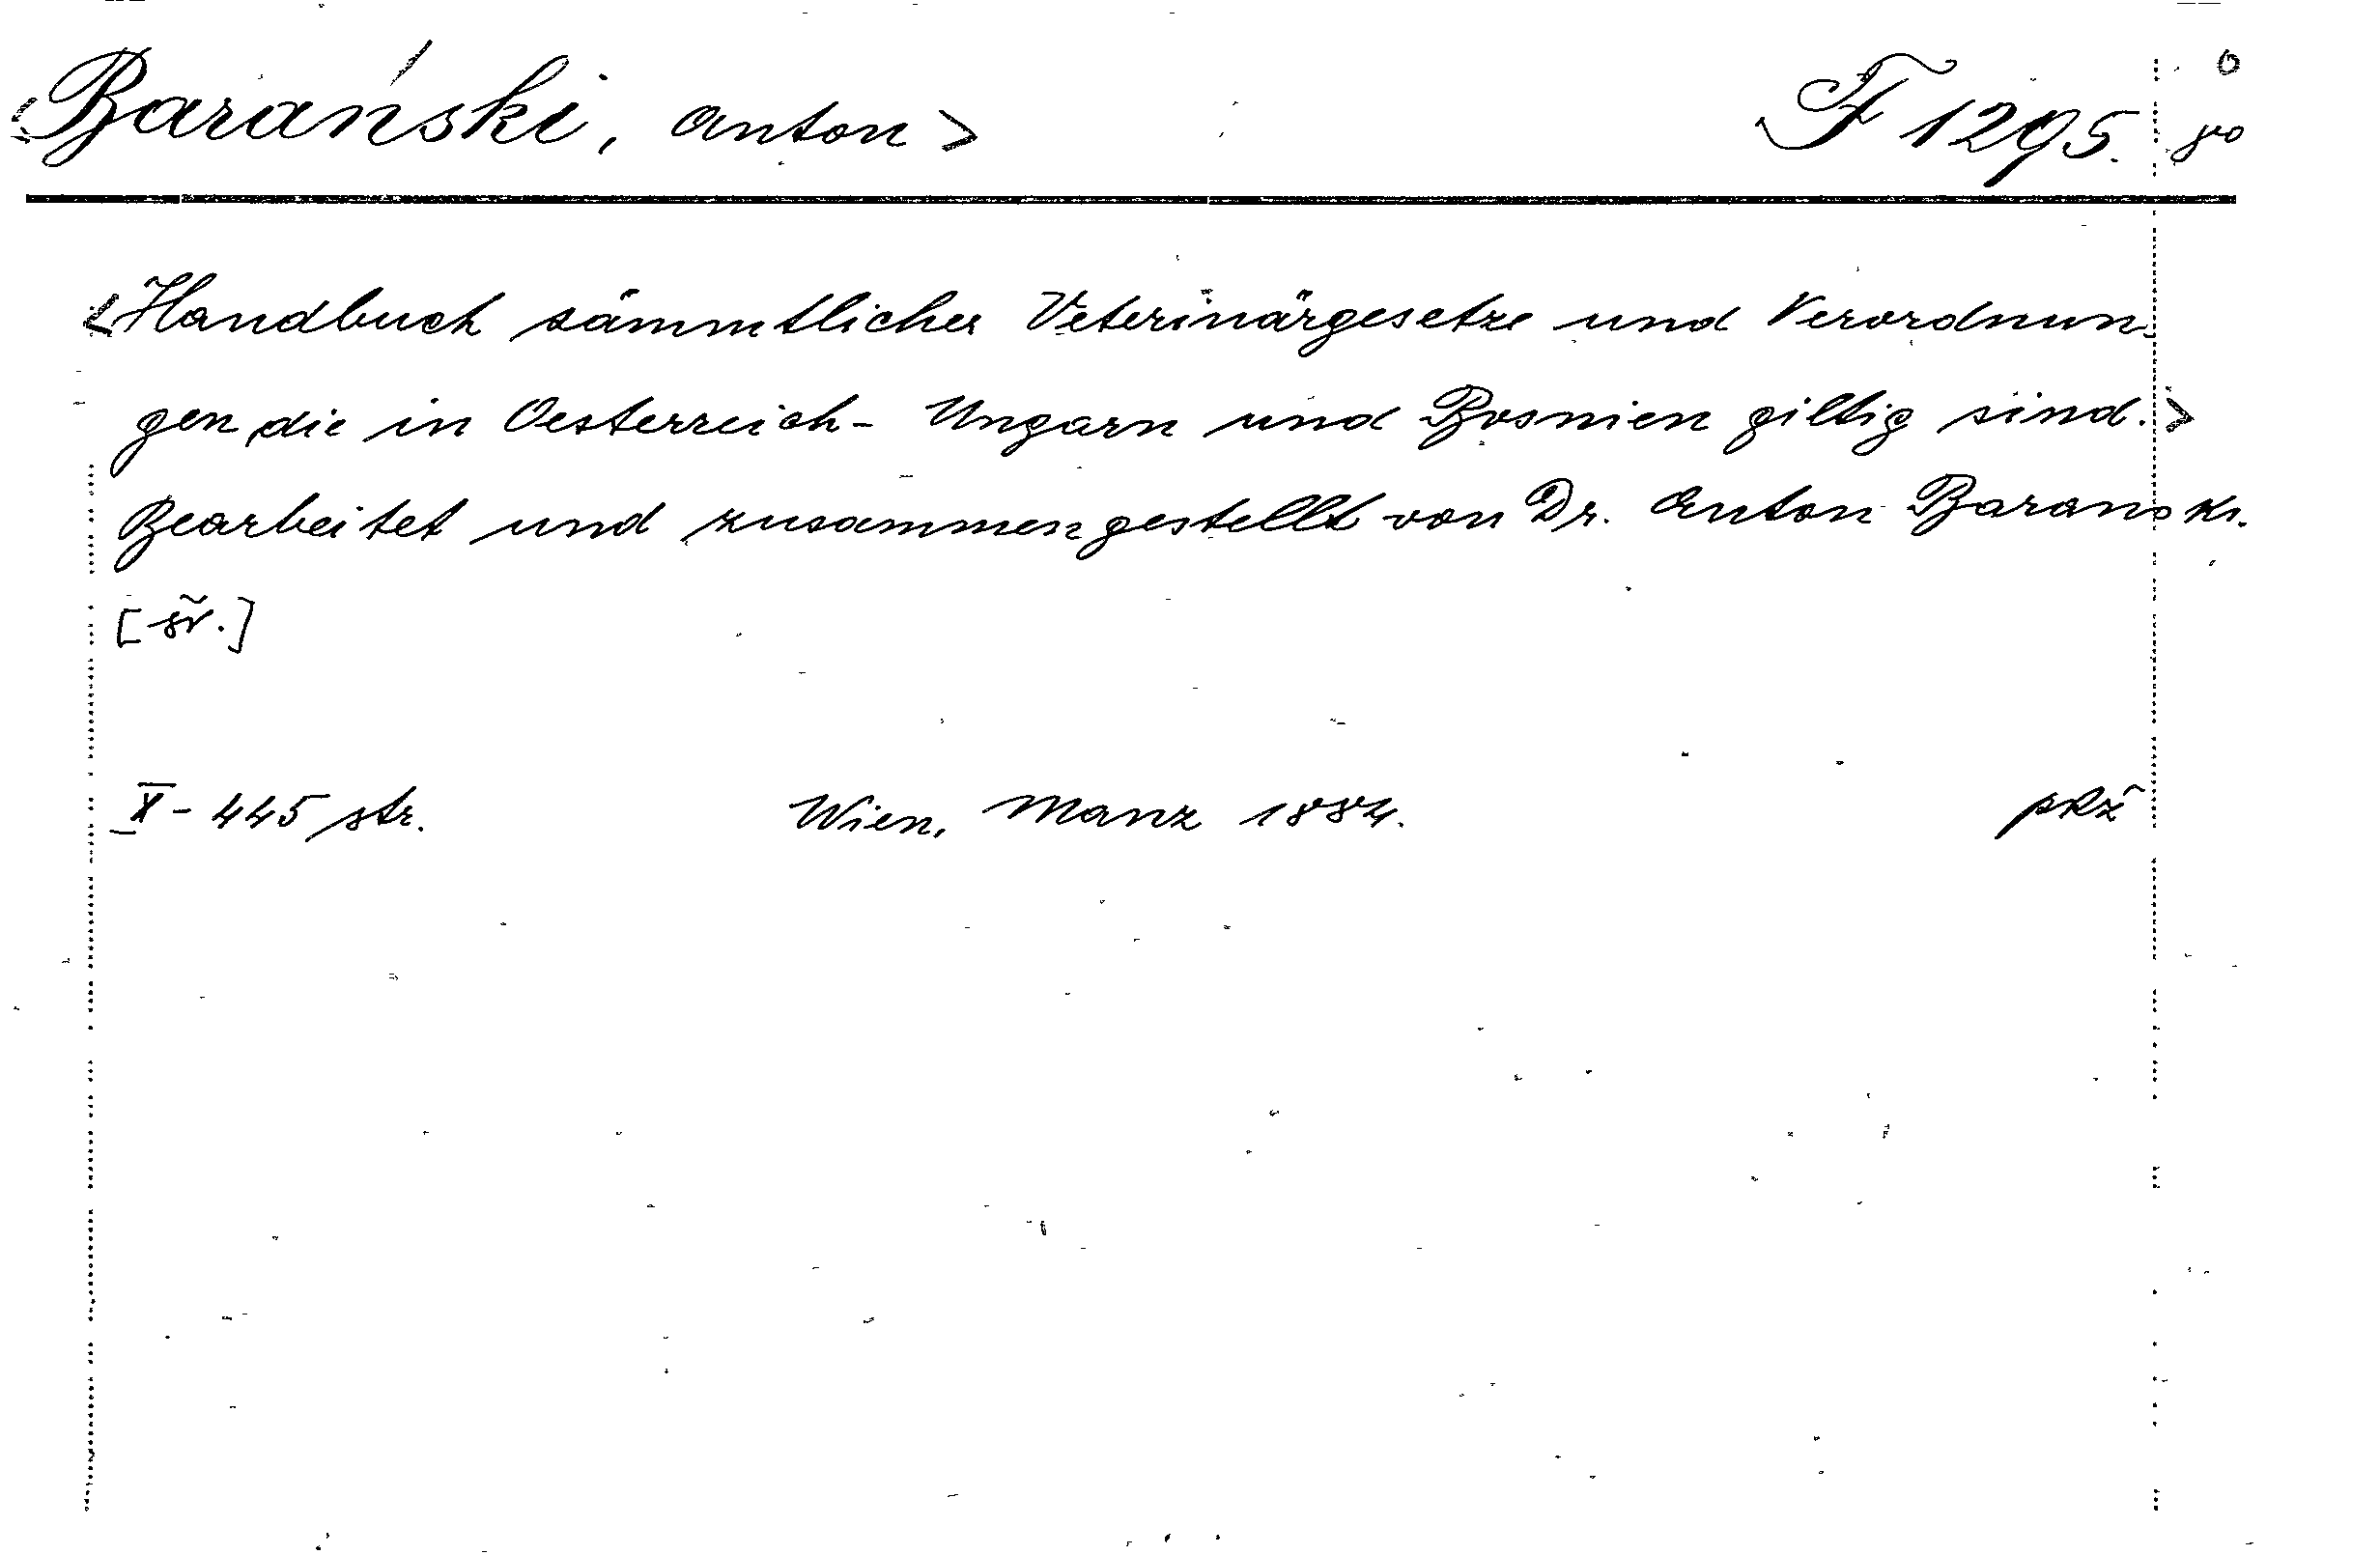 <Barański, Anton> F 1295. 8°
<Handbuch sämmtlicher Veterinärgesetze und Verordnun-
gen, die in Oesterreich-Ungarn und Bosnien giltig sind.>
Bearbeitet und zusammengestellt von Dr. Anton Baranski.
[šv.]
X - 445 str. Wien, Manz 1884. pkž